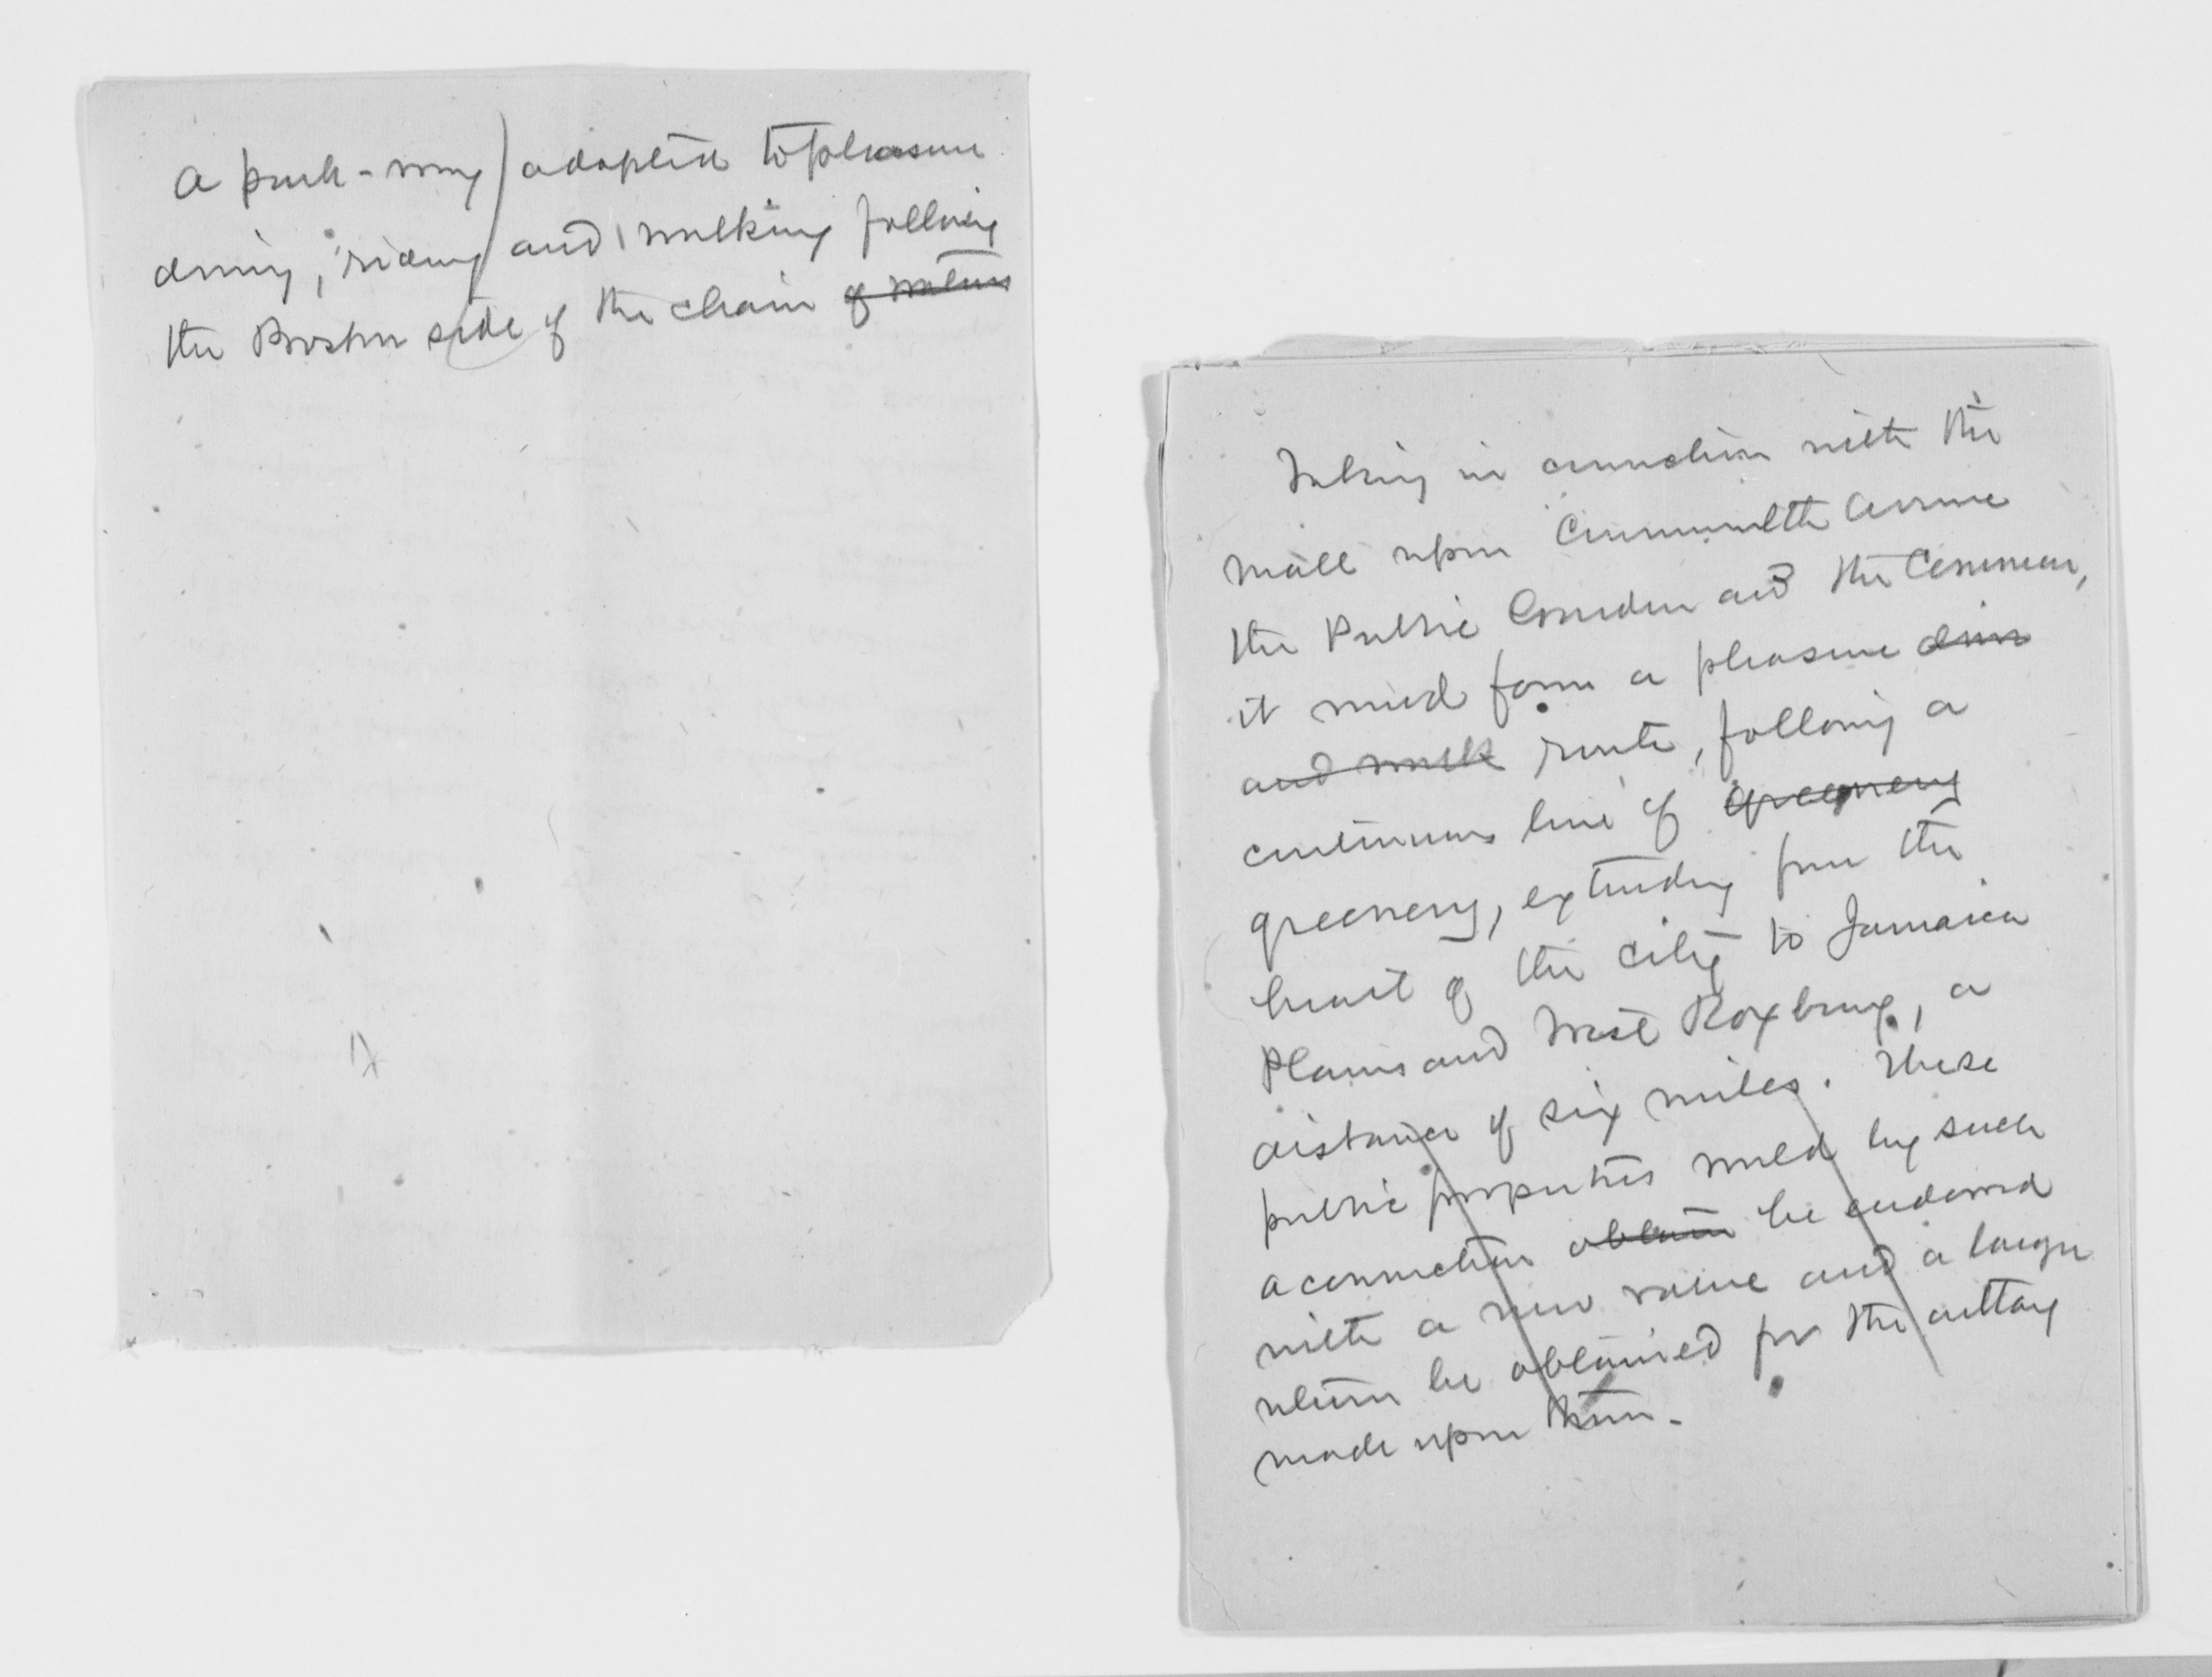 A park-way adapted to pleasure
driving, riding and walking following
the Boston side of the chain of waters
Taking in connection with the
Mall upon Commonwlth Avenue
the Public Garden and the Common,
it would form a pleasure drive
and walk route, following a
continuous line of greenery
greenery, extending from the
heart of the city to Jamaica
Plains and West Roxbury, a
distance of six miles. These
public properties would by such
a connection obtain be endowed
with a new value and a larger
return be obtained for the outlay
made upon them.